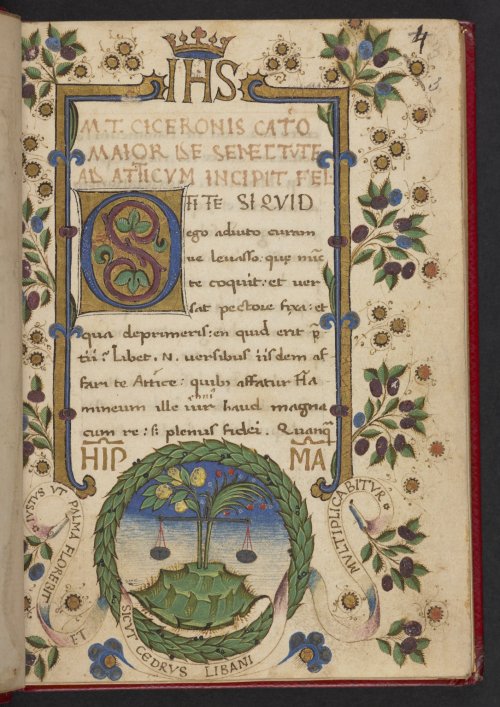 4
IHS
M. T. CICERONIS CATO
MAIOR DE SENECTVTE
AD ATTICVM INCIPIT FEL
O TI TE SI QVID
ego adiuto curam
ue leuasso: que nūc
te coquit: et uer
sat pectore fixa: et
qua deprimeris: en quid erit p̄
tii? Libet. N. uersibus iisdem af
fari te Attice: quibꝰ affatur Fla
mineum ille uir haud magna
cum re: si plenus fidei. Quanq̄
HIP MA
IVSTVS VT
PALMA FLOREBIT
ET
SICVT CEDRVS LIBANI
MVLTIPLICABITVR